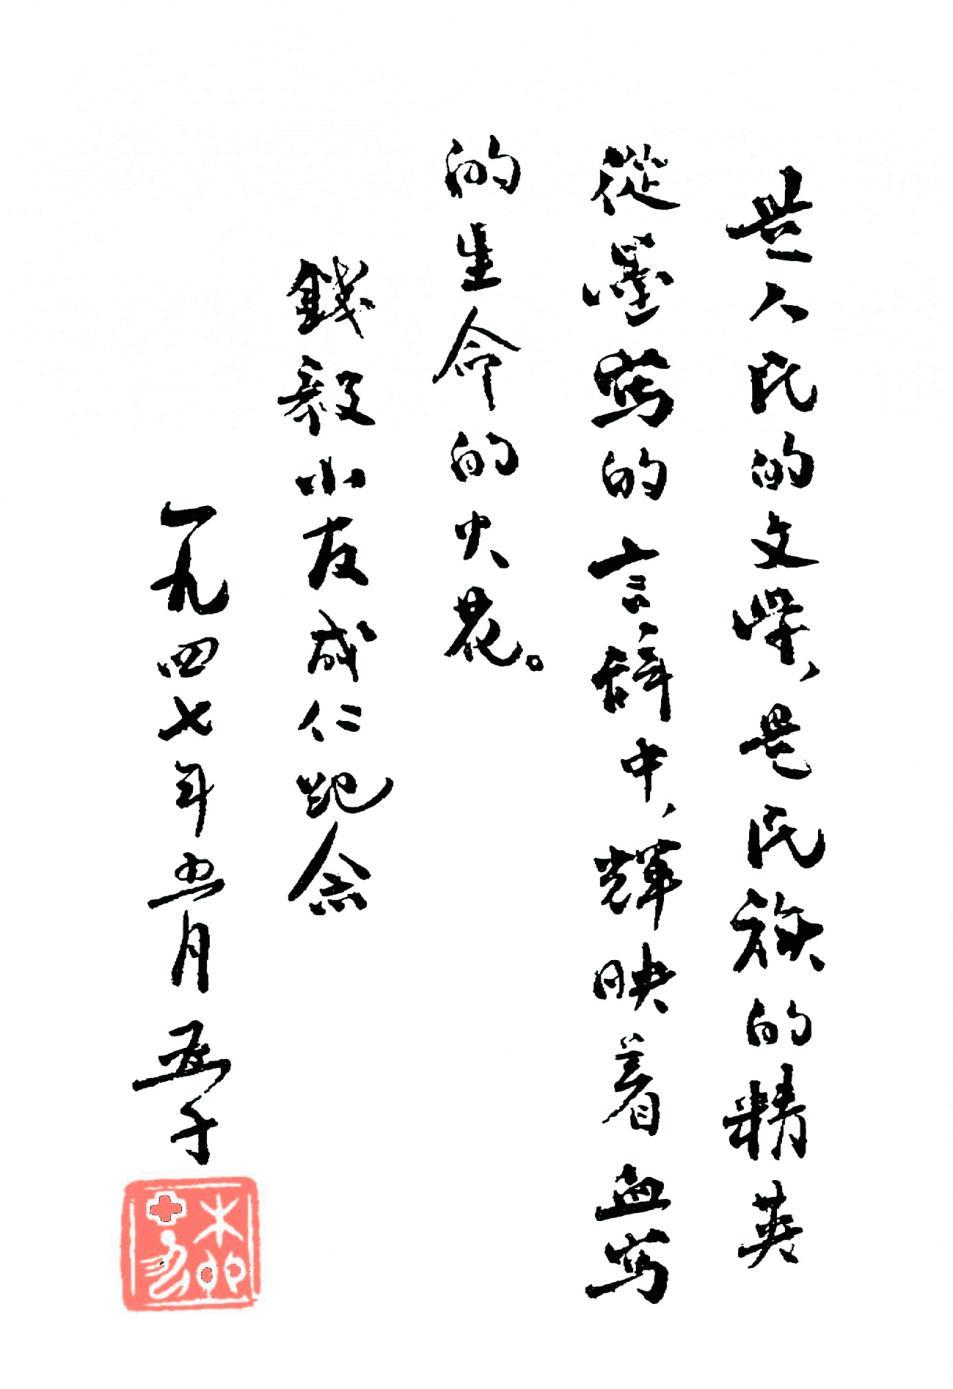 是人民的文學，是民族的精英
從墨寫的言辭中，輝映着血寫
的生命的火花。
錢毅小友成仁紀念
一九四七年五月 亞子
柳亞子